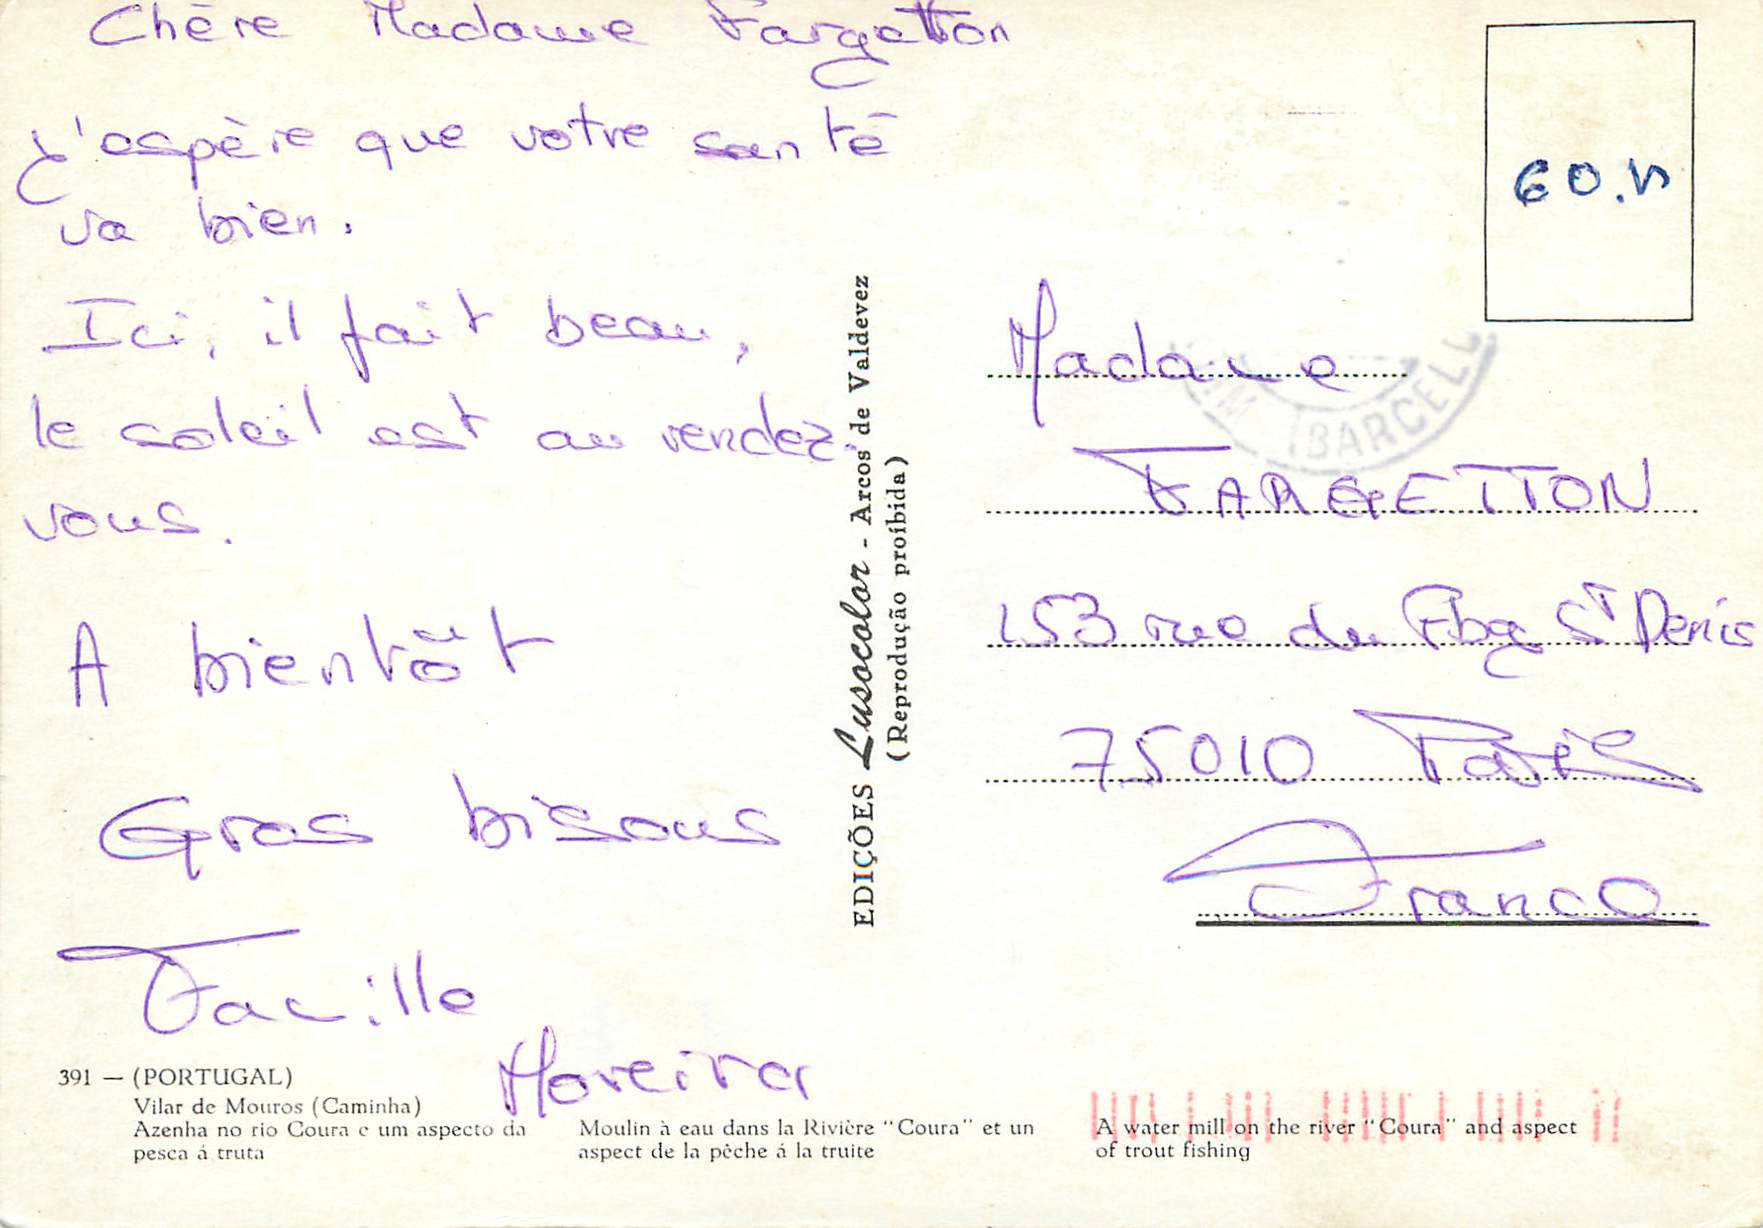 Chère Madame Fargetton
J'espère que votre santé
va bien.
Ici, il fait beau,
le soleil est au rendez-
vous.
A bientôt
Gros bisous
Famille
Moreira
391 — (PORTUGAL)
Vilar de Mouros (Caminha)
Azenha no rio Coura e um aspecto da
pesca á truta
Moulin à eau dans la Rivière "Coura" et un
aspect de la pêche á la truite
A water mill on the river "Coura" and aspect
of trout fishing
EDIÇÕES Lusocolor - Arcos de Valdevez
(Reprodução proibida)
60.
(BARCELL
Madame
FARGETTON
153 rue du Fbg St Denis
75010 Paris
France